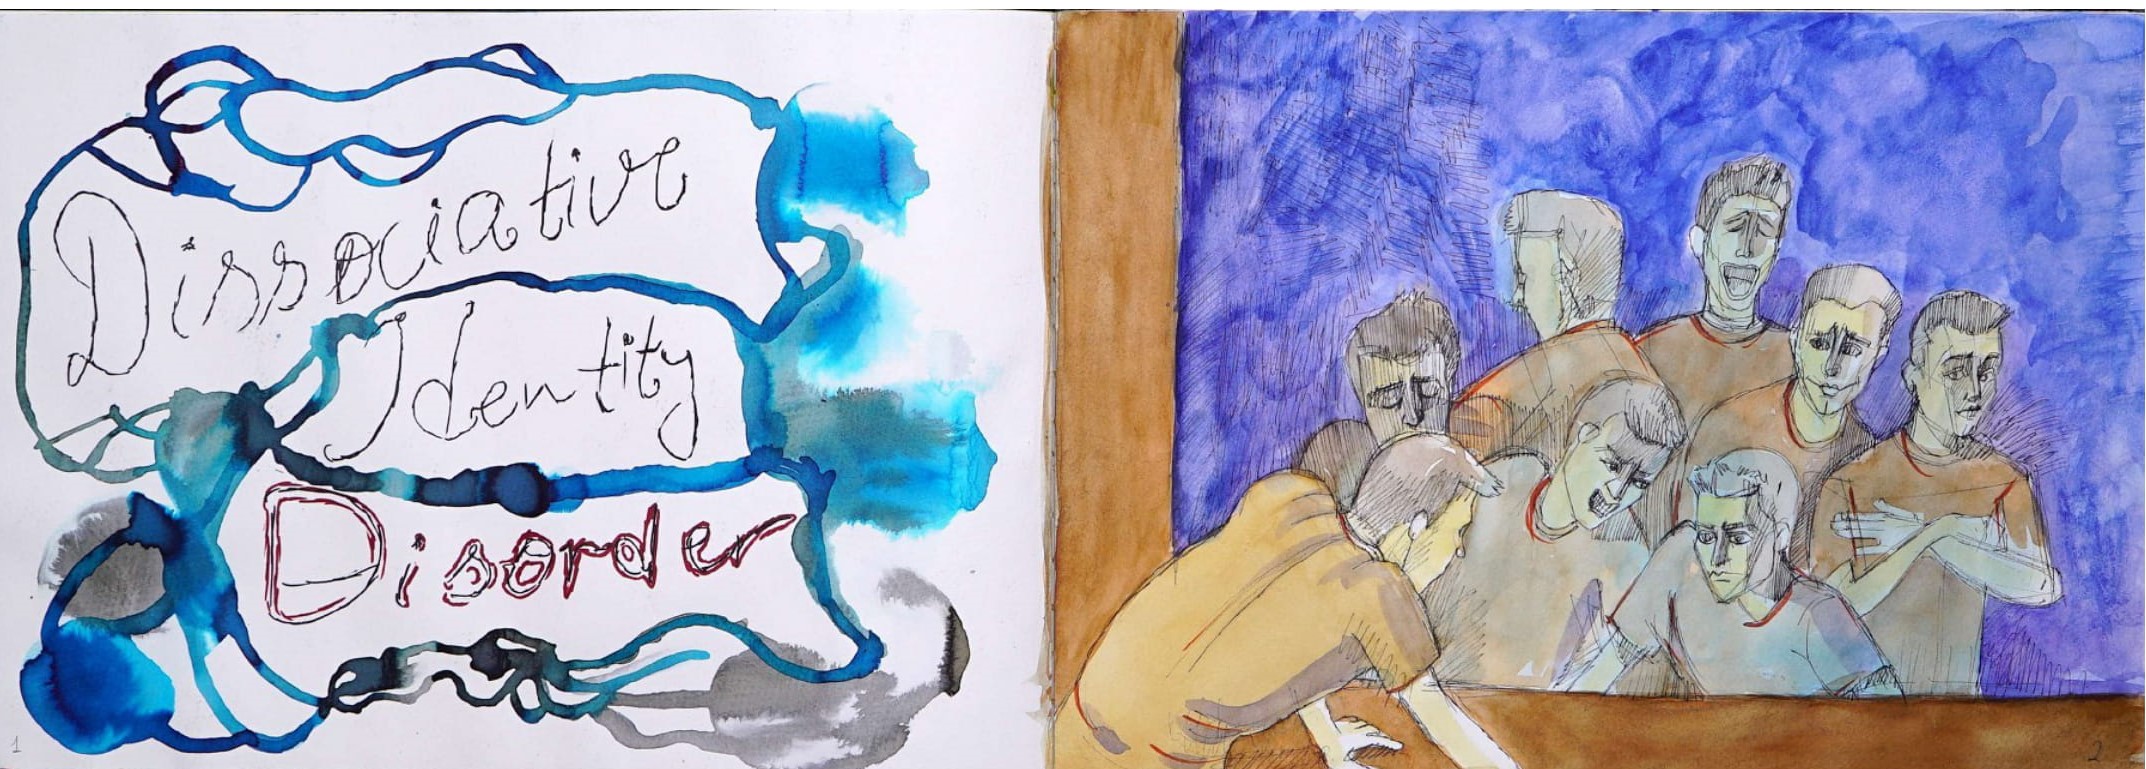 Dissociative
Identity
Disorder
1
2